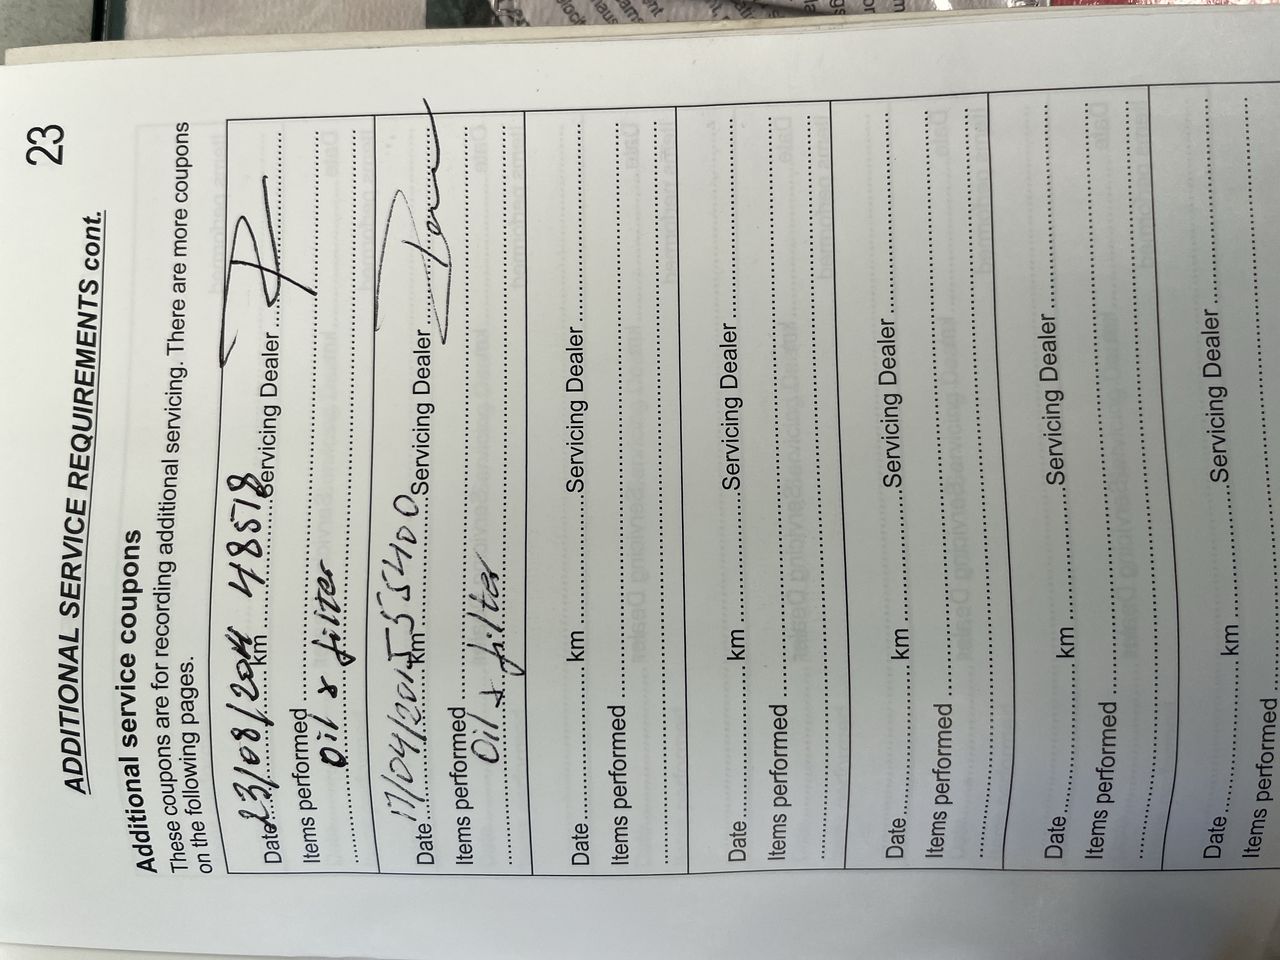 23
ADDITIONAL SERVICE REQUIREMENTS cont.
Additional service coupons
These coupons are for recording additional servicing. There are more coupons
on the following pages.
Date 23/08/2014 km 48578 Servicing Dealer
Items performed
Oil & filter
Date 17/04/2015 km 55400 Servicing Dealer
Items performed
Oil & filter
Date km Servicing Dealer
Items performed
Date km Servicing Dealer
Items performed
Date km Servicing Dealer
Items performed
Date km Servicing Dealer
Items performed
Date km Servicing Dealer
Items performed